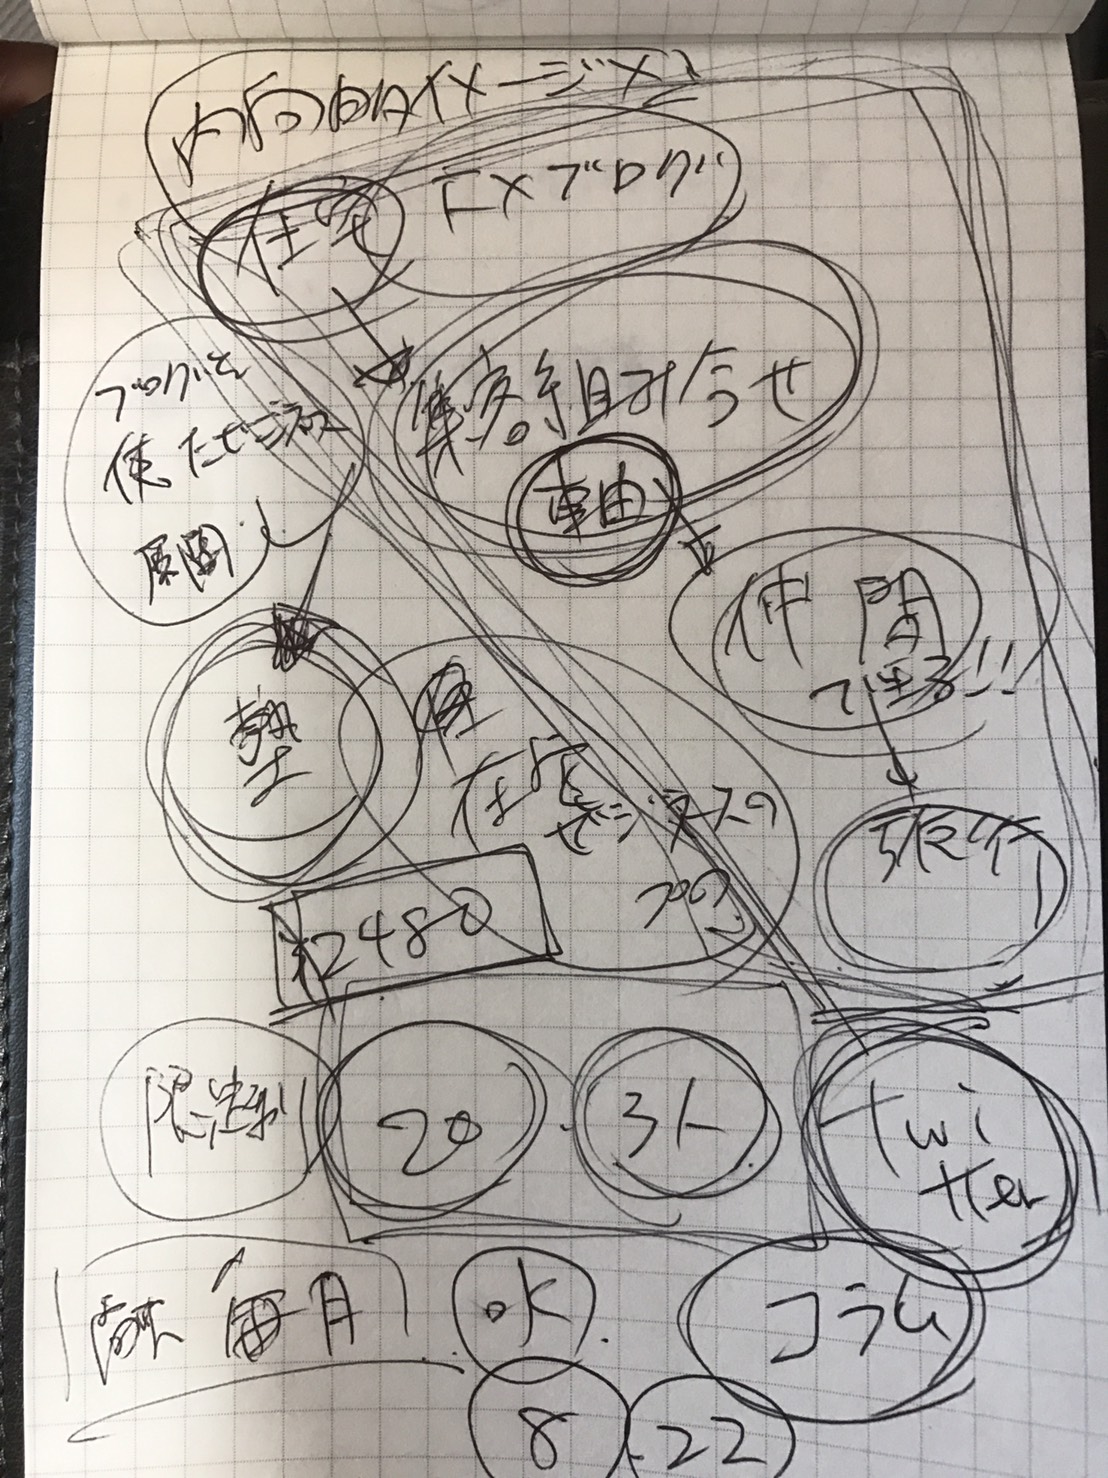 内向的イメージ
在宅 FXブログ
ブログを
使たビジネス
展開
集客 組み合せ
自由
仲間
できる!!
塾
在宅
ビジネスの
ブログ
旅行
2480
限定
20
3人
Twi
tter
毎月
水
コラム
8
22